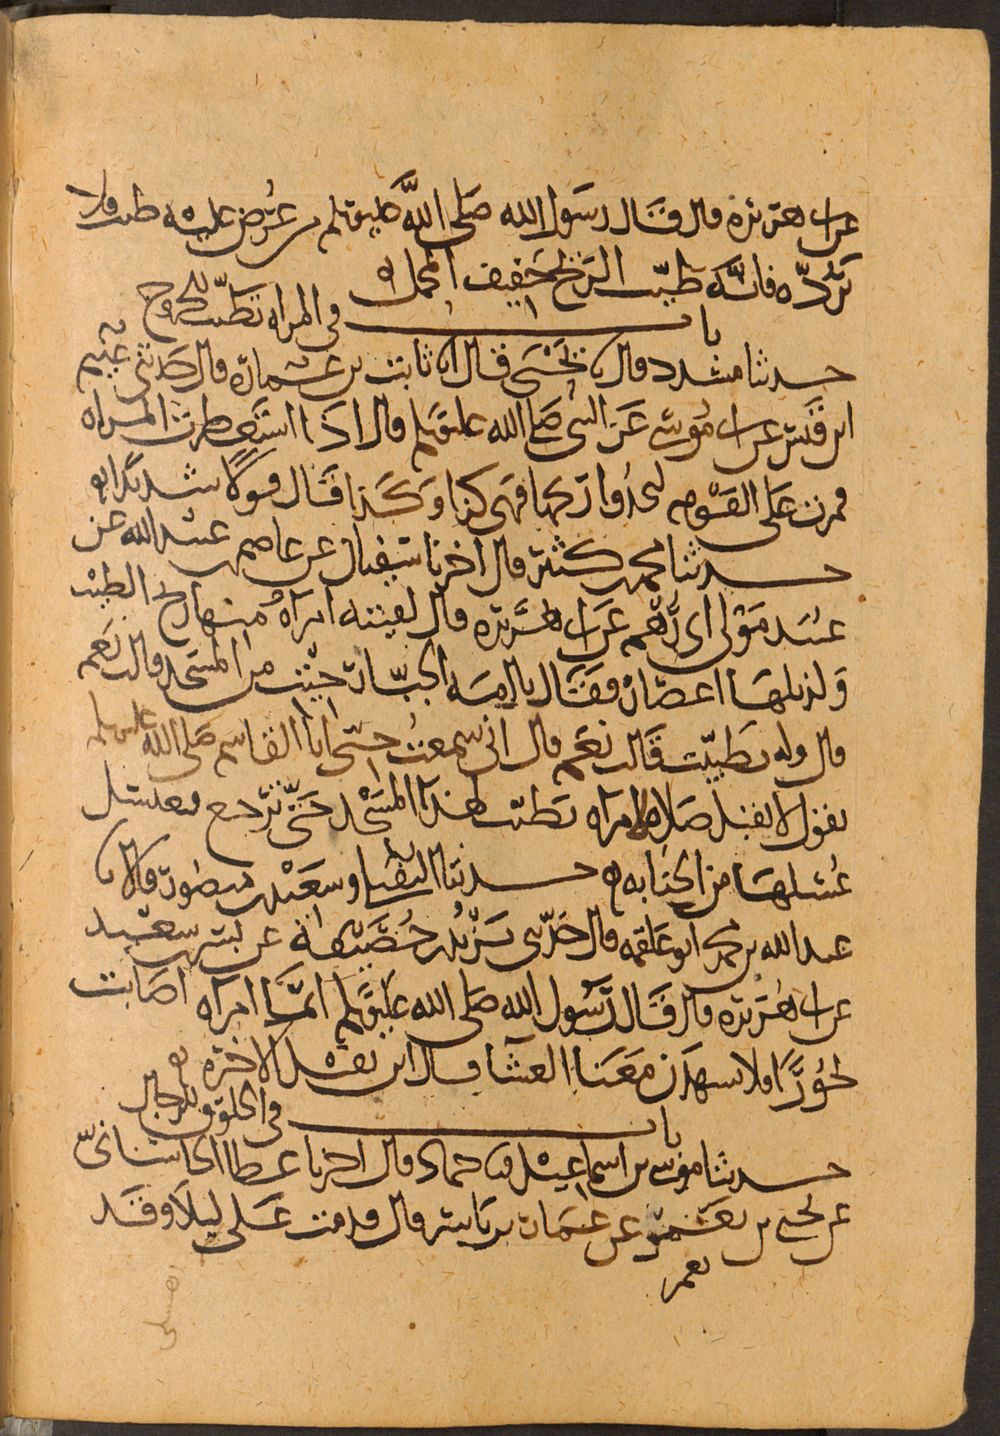 عن ابى هريره قال قال رسول الله صلى الله عليه وسلم من عرض عليه طيب فلا
يردّه فانه طيّب الريح خفيف المحمل
باب فى المراه تطيّب للخروج
حدثنا مسدد قال نا يحيى قال انا ثابت بن عمارة قال حدثنى غنيم
ابن قيس عن ابى موسى عن النبى صلى الله عليه وسلم قال اذا استعطرت المراه
فمرت على القوم ليجدوا ريحها فهى كذا وكذا قال قولا شديدا
حدثنا محمد بن كثير قال اخبرنا سفيان عن عاصم بن عبيد الله عن
عبيد مولى ابى رُهم عن ابى هريره قال لقيته امراه منها ريح الطيب
ولذيلها اعصار فقال يا امه الجبّار جيت من المسجد قالت نعم
قال وله تطيّبت قالت نعم قال انى سمعت حبّى ابا القاسم صلى الله عليه وسلم
يقول لا يقبل صلاه لامراه تطيبت لهذا المسجد حتى ترجع فتغتسل
غسلها من الجنابه حدثنا النفيلى وسعيد بن منصور قالا نا
عبد الله بن محمد ابو علقمه قال حدّثنى يزيد بن خُصَيفه عن بسر بن سعيد
عن ابى هريره قال قال رسول الله صلى الله عليه وسلم ايّما امراه اصابت
بخورًا فلا تشهدن معنا العشا قال ابن نفيل الاخره
باب فى الخلوق للرجال
حدثنا موسى بن اسماعيل نا حماد قال اخبرنا عطا الخراسانىّ
عن يحيى بن يعمر عن عمار بن ياسر قال قدمت على ليلا وقد
يعمر
اهلى